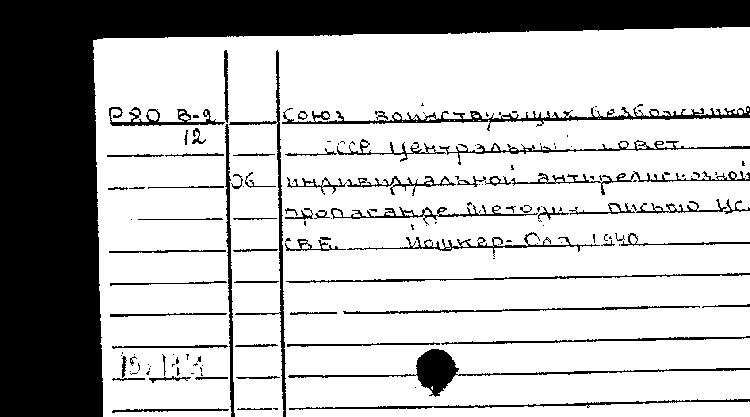 Р80 В-2 Союз воинствующих безбожников
12 СССР. Центральный совет.
Об индивидуальной антирелигиозной
пропаганде. Методич. письмо ЦС.
СВБ. Йошкар-Ола, 1940.